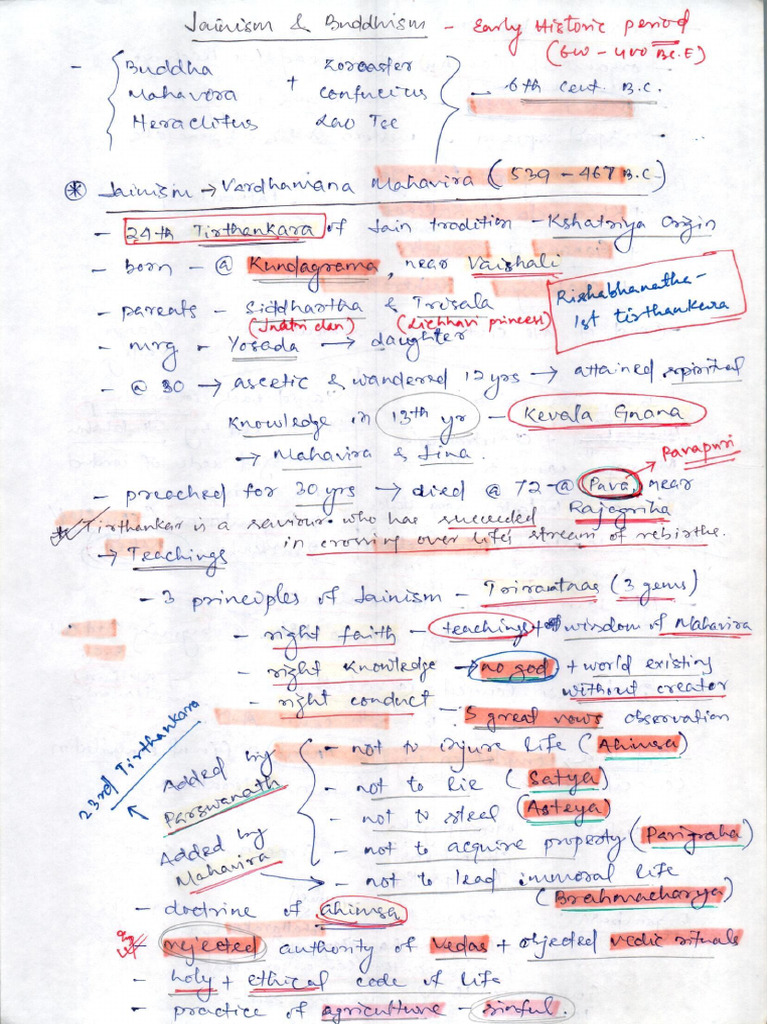 Jainism & Buddhism - Early Historic period
(600 - 400 B.C.E)
- Buddha + Zoroaster
Mahavira Confucius - 6th Cent. B.C.
Heraclitus Lao Tse
* Jainism → Vardhamana Mahavira (539 - 467 B.C.)
- 24th Tirthankara of Jain tradition - Kshatriya Origin
- born - @ Kundagrama, near Vaishali
Rishabhanatha -
1st tirthankara
- parents - Siddhartha & Trisala
(Jnatri clan) (Lichhavi princess)
- mrg - Yosada → daughter
- @ 30 → ascetic & wandered 12 yrs → attained spiritual
knowledge in 13th yr - Kevala Gnana
→ Mahavira & Jina.
Pavapuri
- preached for 30 yrs → died @ 72 - @ Pava, near
Rajagriha
* Tirthankar is a saviour who has succeeded
in crossing over life's stream of rebirths.
→ Teachings
- 3 principles of Jainism - Triratnas (3 gems)
- right faith - teachings + wisdom of Mahavira
- right knowledge → no god + world existing
without creator
- right conduct - 5 great vows observation
23rd Tirthankara
Added by
Parswanath
- not to injure life (Ahimsa)
- not to lie (Satya)
- not to steel (Asteya)
- not to acquire property (Parigraha)
Added by
Mahavira
- not to lead immoral life
(Brahmacharya)
- doctrine of ahimsa
- rejected authority of Vedas + objected vedic rituals
- holy + ethical code of life
- practice of agriculture - sinful.